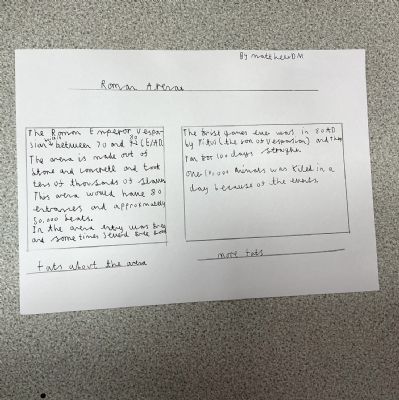 By matthew DM
Roman Arena
The Roman Emperor Vespa-
sian was between 70 and 80 CE/AD.
The arena is made out of
stone and concrete and took
tens of thousands of slaves
This arena would have 80
entrances and approximately
50,000 seats.
In the arena entry was free
and some times served free food
fats about the arena
The first games ever was in 80 AD
by Titus (the son of Vespasian) and They
ran for 100 days straight
animals was killed in a
day because of the events.
more fats